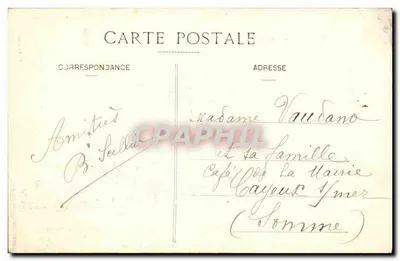 CARTE POSTALE
CORRESPONDANCE
ADRESSE
Amitiés
B.
Madame Vaudano
et sa famille
Café de la Mairie
Cayeux s/mer
(Somme)
CPAPHIL